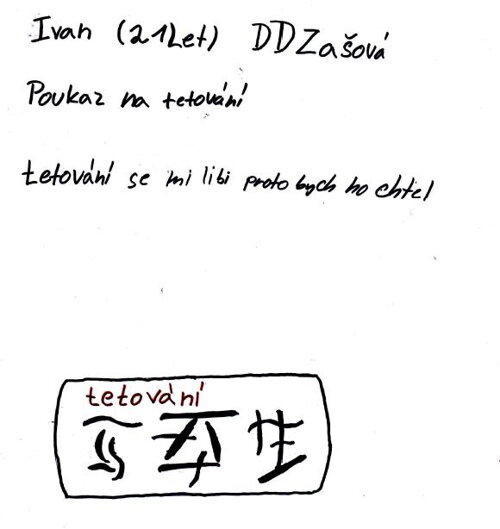 Ivan (21Let) DDZašová
Poukaz na tetování
tetování se mi libi proto bych ho chtel
tetování